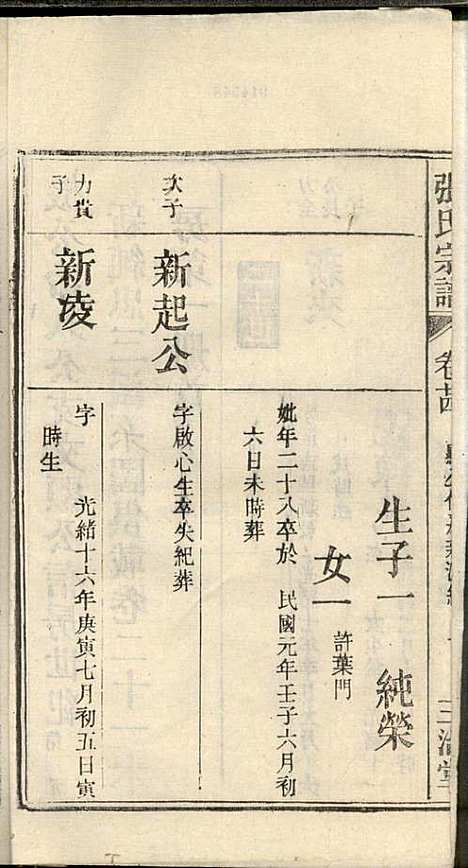 張氏宗譜 卷廿四
生子一 純榮
女一 許葉門
妣年二十八卒於 民國元年壬子六月初
六日未時葬
次子
新起公
字啟心生卒失紀葬
力貴
子
新凌
字 光緒十六年庚寅七月初五日寅
時生